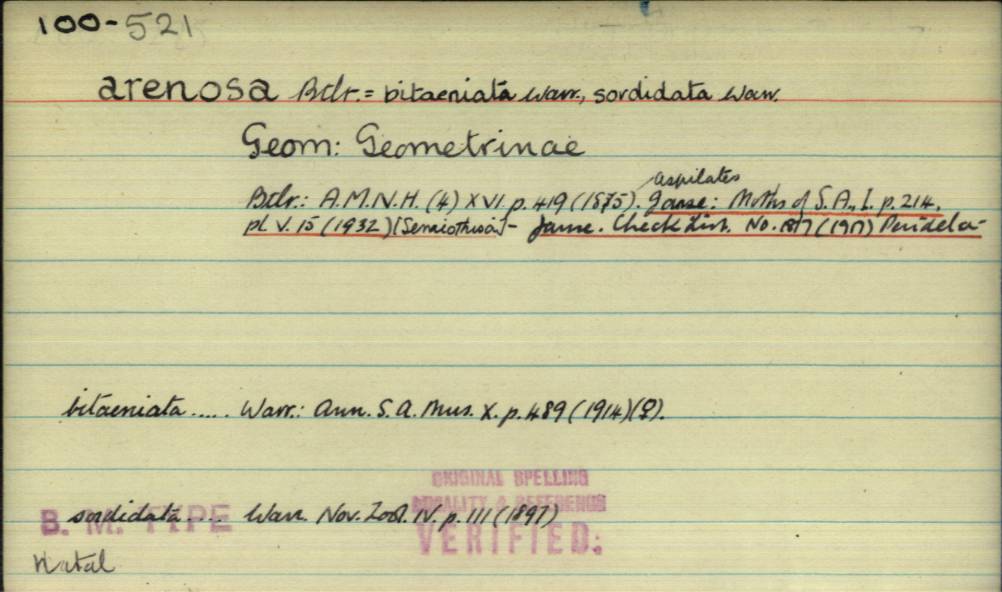 100-521
arenosa Btlr. = bitaeniata Warr., sordidata Warr.
Geom: Geometrinae
Aspilates
Btlr.: A.M.N.H. (4) XVI. p. 419 (1875). Janse: Moths of S.A., I. p. 214.
pl. V. 15 (1932) [Semiothisa] - Janse. Check List. No. (1917)
bitaeniata ..... Warr.: Ann. S.A. Mus. X. p. 489 (1914) (♀).
ORIGINAL SPELLING
LOCALITY & REFERENCE
sordidata .... Warr. Nov. Zool. IV. p. 111 (1897)
B. M. TYPE
VERIFIED:
Natal